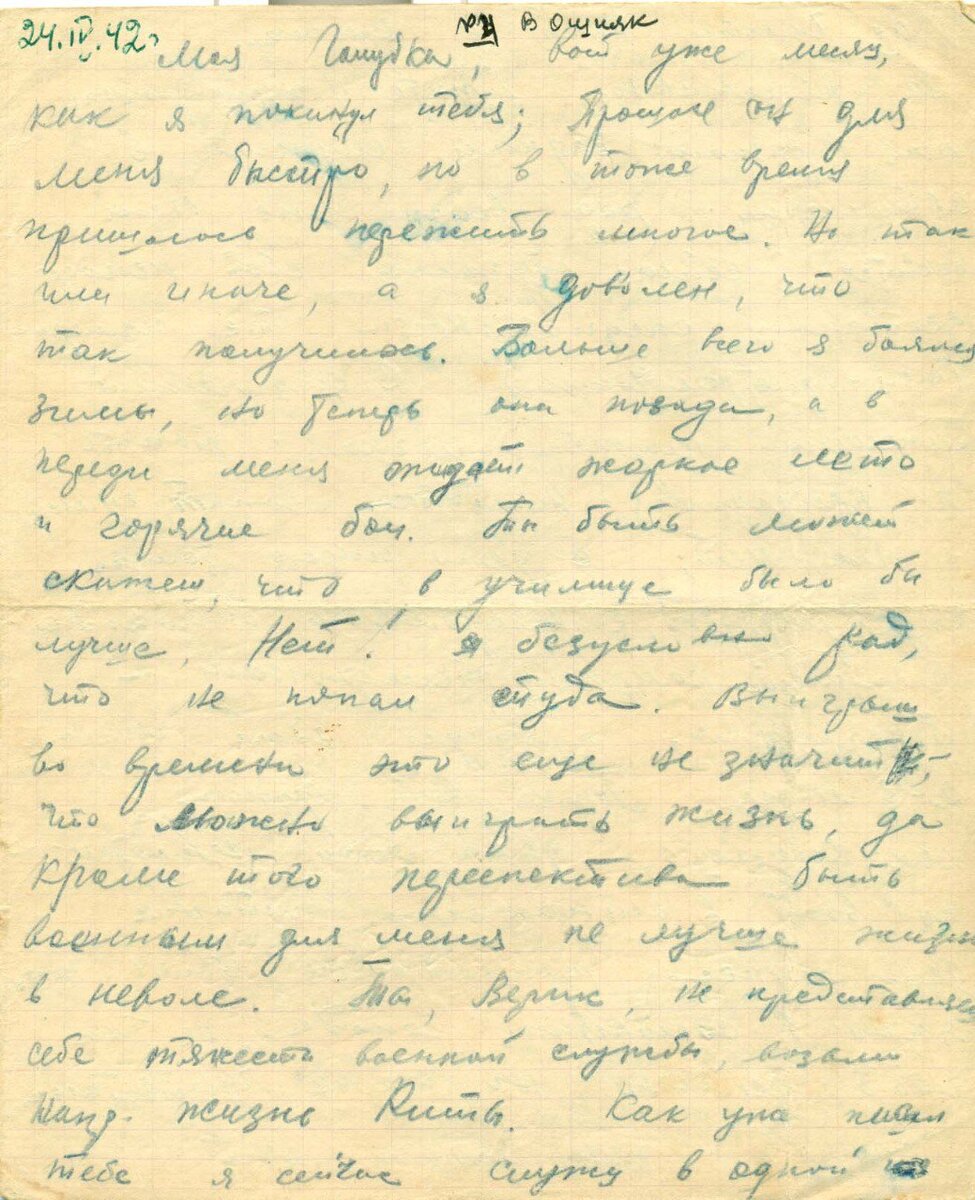 24.IV.42г № 4 В Ошняк
Моя Голубка, вот уже месяц,
как я покинул тебя; Прошел он для
меня быстро, но в тоже время
пришлось пережить многое. Но так
или иначе, а я доволен, что
так получилось. Больше всего я боялся
зимы, но теперь она позади, а в
переди меня ждет жаркое лето
и горячие бои. Ты быть может
скажеш, что в училище было бы
лучше, Нет! я безусловно рад,
что не попал туда. Выигрыш
во времени это еще не значит,
что можно выиграть жизнь, да
кроме того перспектива быть
военным для меня не лучше жизни
в неволе. Ты, Верик, не представляеш
себе тяжесть военной службы, возьми
напр. жизнь Риты. Как уже писал
тебе я сейчас служу в одной